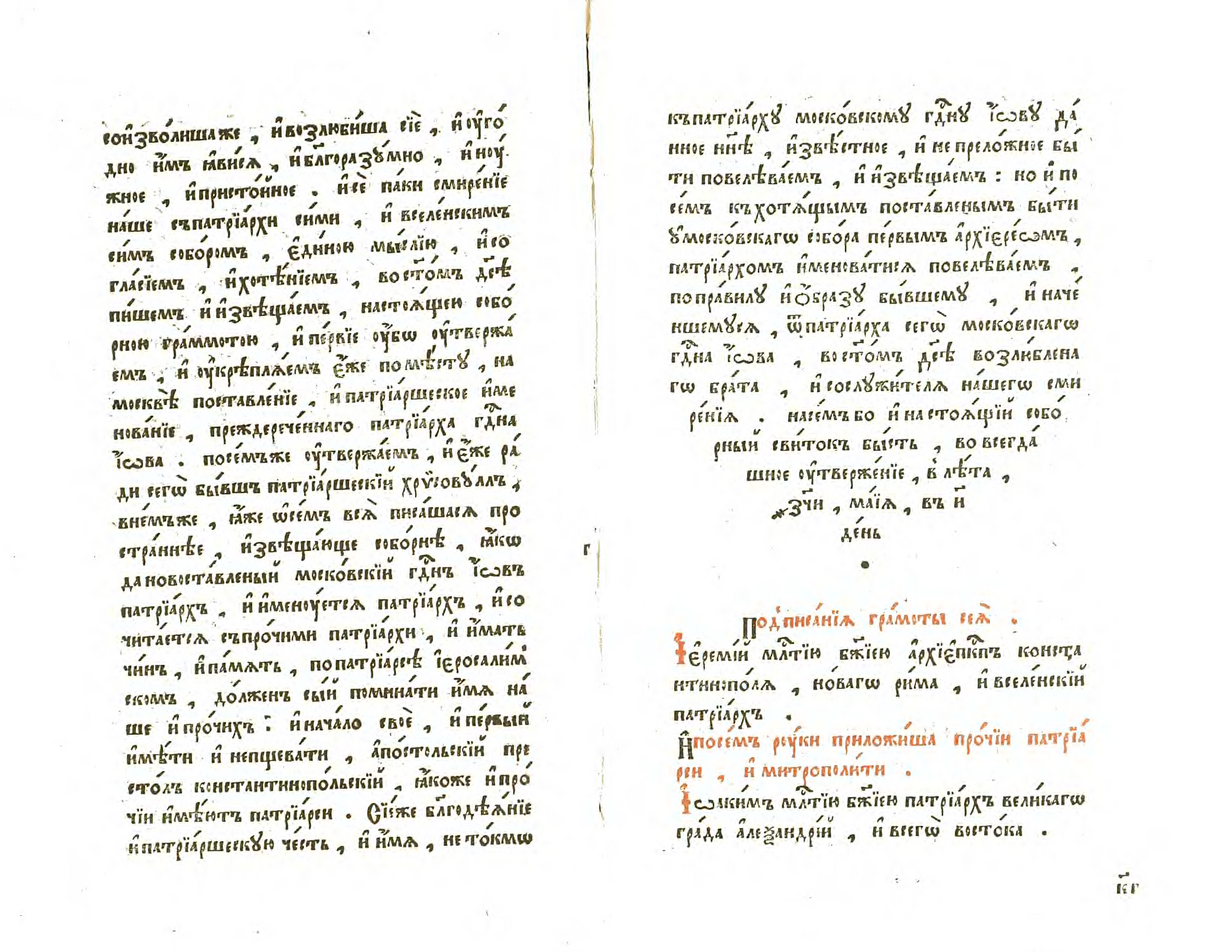 сои҆зво́лишаже , и҆возлюби́ша сїѐ , и҆ ᲂу҆го́
дно и҆̀мъ ꙗ҆ви́сѧ , и҆бл҃горазꙋ́мно , и҆нꙋ́
жное , и҆присто́йное . и҆сѐ па́ки смире́нїе
на́ше съпатрїа́рхи си́ми , и҆ вселе́нскимъ
си́мъ собо́ромъ , є҆ди́ною мы́слїю , и҆со
гла́сїемъ , и҆хотѣ́нїемъ , во ст҃о́мъ дс҃ѣ
пи́шемъ и҆ и҆звѣща́емъ , настоѧ́щею собо́
рною гра́ммотою , и҆ пе́рвїе ᲂу҆́бѡ ᲂу҆твержа́
емъ , и҆ ᲂу҆крѣплѧ́емъ є҆́же по мѣ́стꙋ , на
москвѣ̀ поставле́нїе , и҆патрїа́ршеское и҆ме
нова́нїе , преждерече́ннаго патрїа́рха гдⷭ҇на
і҆́ѡва . посе́мъже ᲂу҆твержа́емъ , и҆ є҆́же ра́
ди сегѡ̀ бы́вшъ патрїа́ршескїй хрѷсовꙋ́ллъ ,
вне́мъже , ꙗ҆́же ѡ҆се́мъ всѧ̀ писа́шасѧ про
стра́ннѣе , и҆звѣща́юще собо́рнѣ , ꙗ҆́кѡ
да новоста́вленый моско́вскїй гдⷭ҇нъ і҆́ѡвъ
патрїа́рхъ , и҆ и҆мену́ется патрїа́рхъ , и҆ со
чита́етсѧ съпро́чими патрїа́рхи , и҆ и҆́мать
чи́нъ , и҆па́мѧть , попатрїа́рсѣ і҆еросали́м
скомъ , до́лженъ сы́й помина́ти и҆́мѧ на́
ше и҆ про́чихъ : и҆ нача́ло своѐ , и҆ пе́рвый
и҆мѣ́ти и҆ непщева́ти , а҆по́стольскїй пре
сто́лъ константинопо́льскїй , ꙗ҆́коже и҆ про́
чїи и҆мѣ́ютъ патрїа́рси . Сїе́же бл҃годѣѧ́нїе
и҆ патрїа́ршескꙋю че́сть , и҆ и҆́мѧ , не то́кмѡ
г
къпатрїа́рхꙋ моско́вскомꙋ гдⷭ҇нꙋ і҆́ѡвꙋ да́
нное нн҃ѣ , и҆звѣ́стное , и҆ непрело́жное бы́
ти повелѣва́емъ , и҆ и҆звѣща́емъ : но и҆ по
се́мъ къхотѧ́щымъ поста́вленымъ бы́ти
ᲂу҆моско́вскагѡ собо́ра пе́рвымъ а҆рхїере́ѡмъ ,
патрїа́рхомъ и҆менова́тисѧ повелѣва́емъ ,
по пра́вилꙋ и҆ ѻ҆́бразꙋ бы́вшемꙋ , и҆ наче́
ншемꙋсѧ , ѿ патрїа́рха сегѡ̀ моско́вскагѡ
гдⷭ҇на і҆́ѡва , во ст҃о́мъ дс҃ѣ возлю́блена
гѡ бра́та , и҆ сослꙋжи́телѧ на́шегѡ сми
ре́нїѧ . насе́мъ бо и҆ на стоѧ́щїй собо́
рный сви́токъ бы́сть , во всегда́
шное ᲂу҆твержде́нїе , в лѣ́та ,
҂зч҃и , ма́їѧ , въ и҃
де́нь
Под̾писа́нїѧ гра́моты сеѧ̀ .
І҆еремі́й мл҃тїю бж҃їею а҆рхїепⷭ҇кпъ конста
нтинопо́лѧ , но́вагѡ ри́ма , и҆ вселе́нскїй
патрїа́рхъ .
И҆посе́мъ рꙋ́ки приложи́ша про́чїи патрїа́
рси , и҆ митрополи́ти .
І҆ѡаки́мъ мл҃тїю бж҃їею патрїа́рхъ вели́кагѡ
гра́да а҆леѯандрі́й , и҆ всегѡ̀ восто́ка .
к҃г